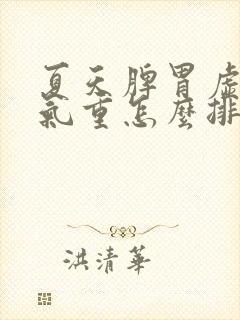 夏天脾胃虛
氣重怎麼排
洪清華